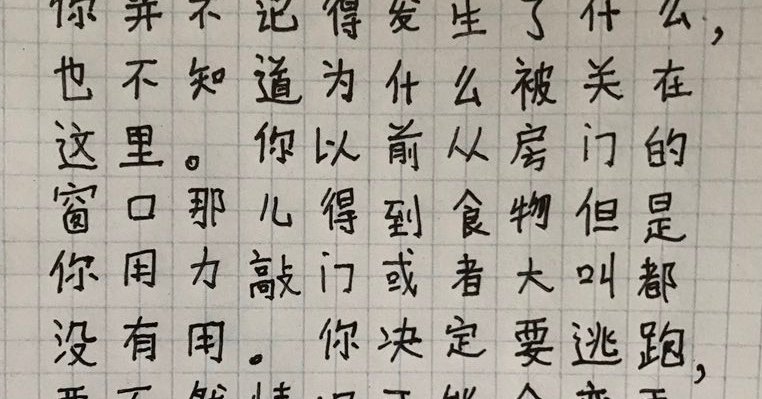 你并不记得发生了什么，
也不知道为什么被关在
这里。你以前从房门的
窗口那儿得到食物但是
你用力敲门或者大叫都
没有用。你决定要逃跑，
要不然情况可能会变